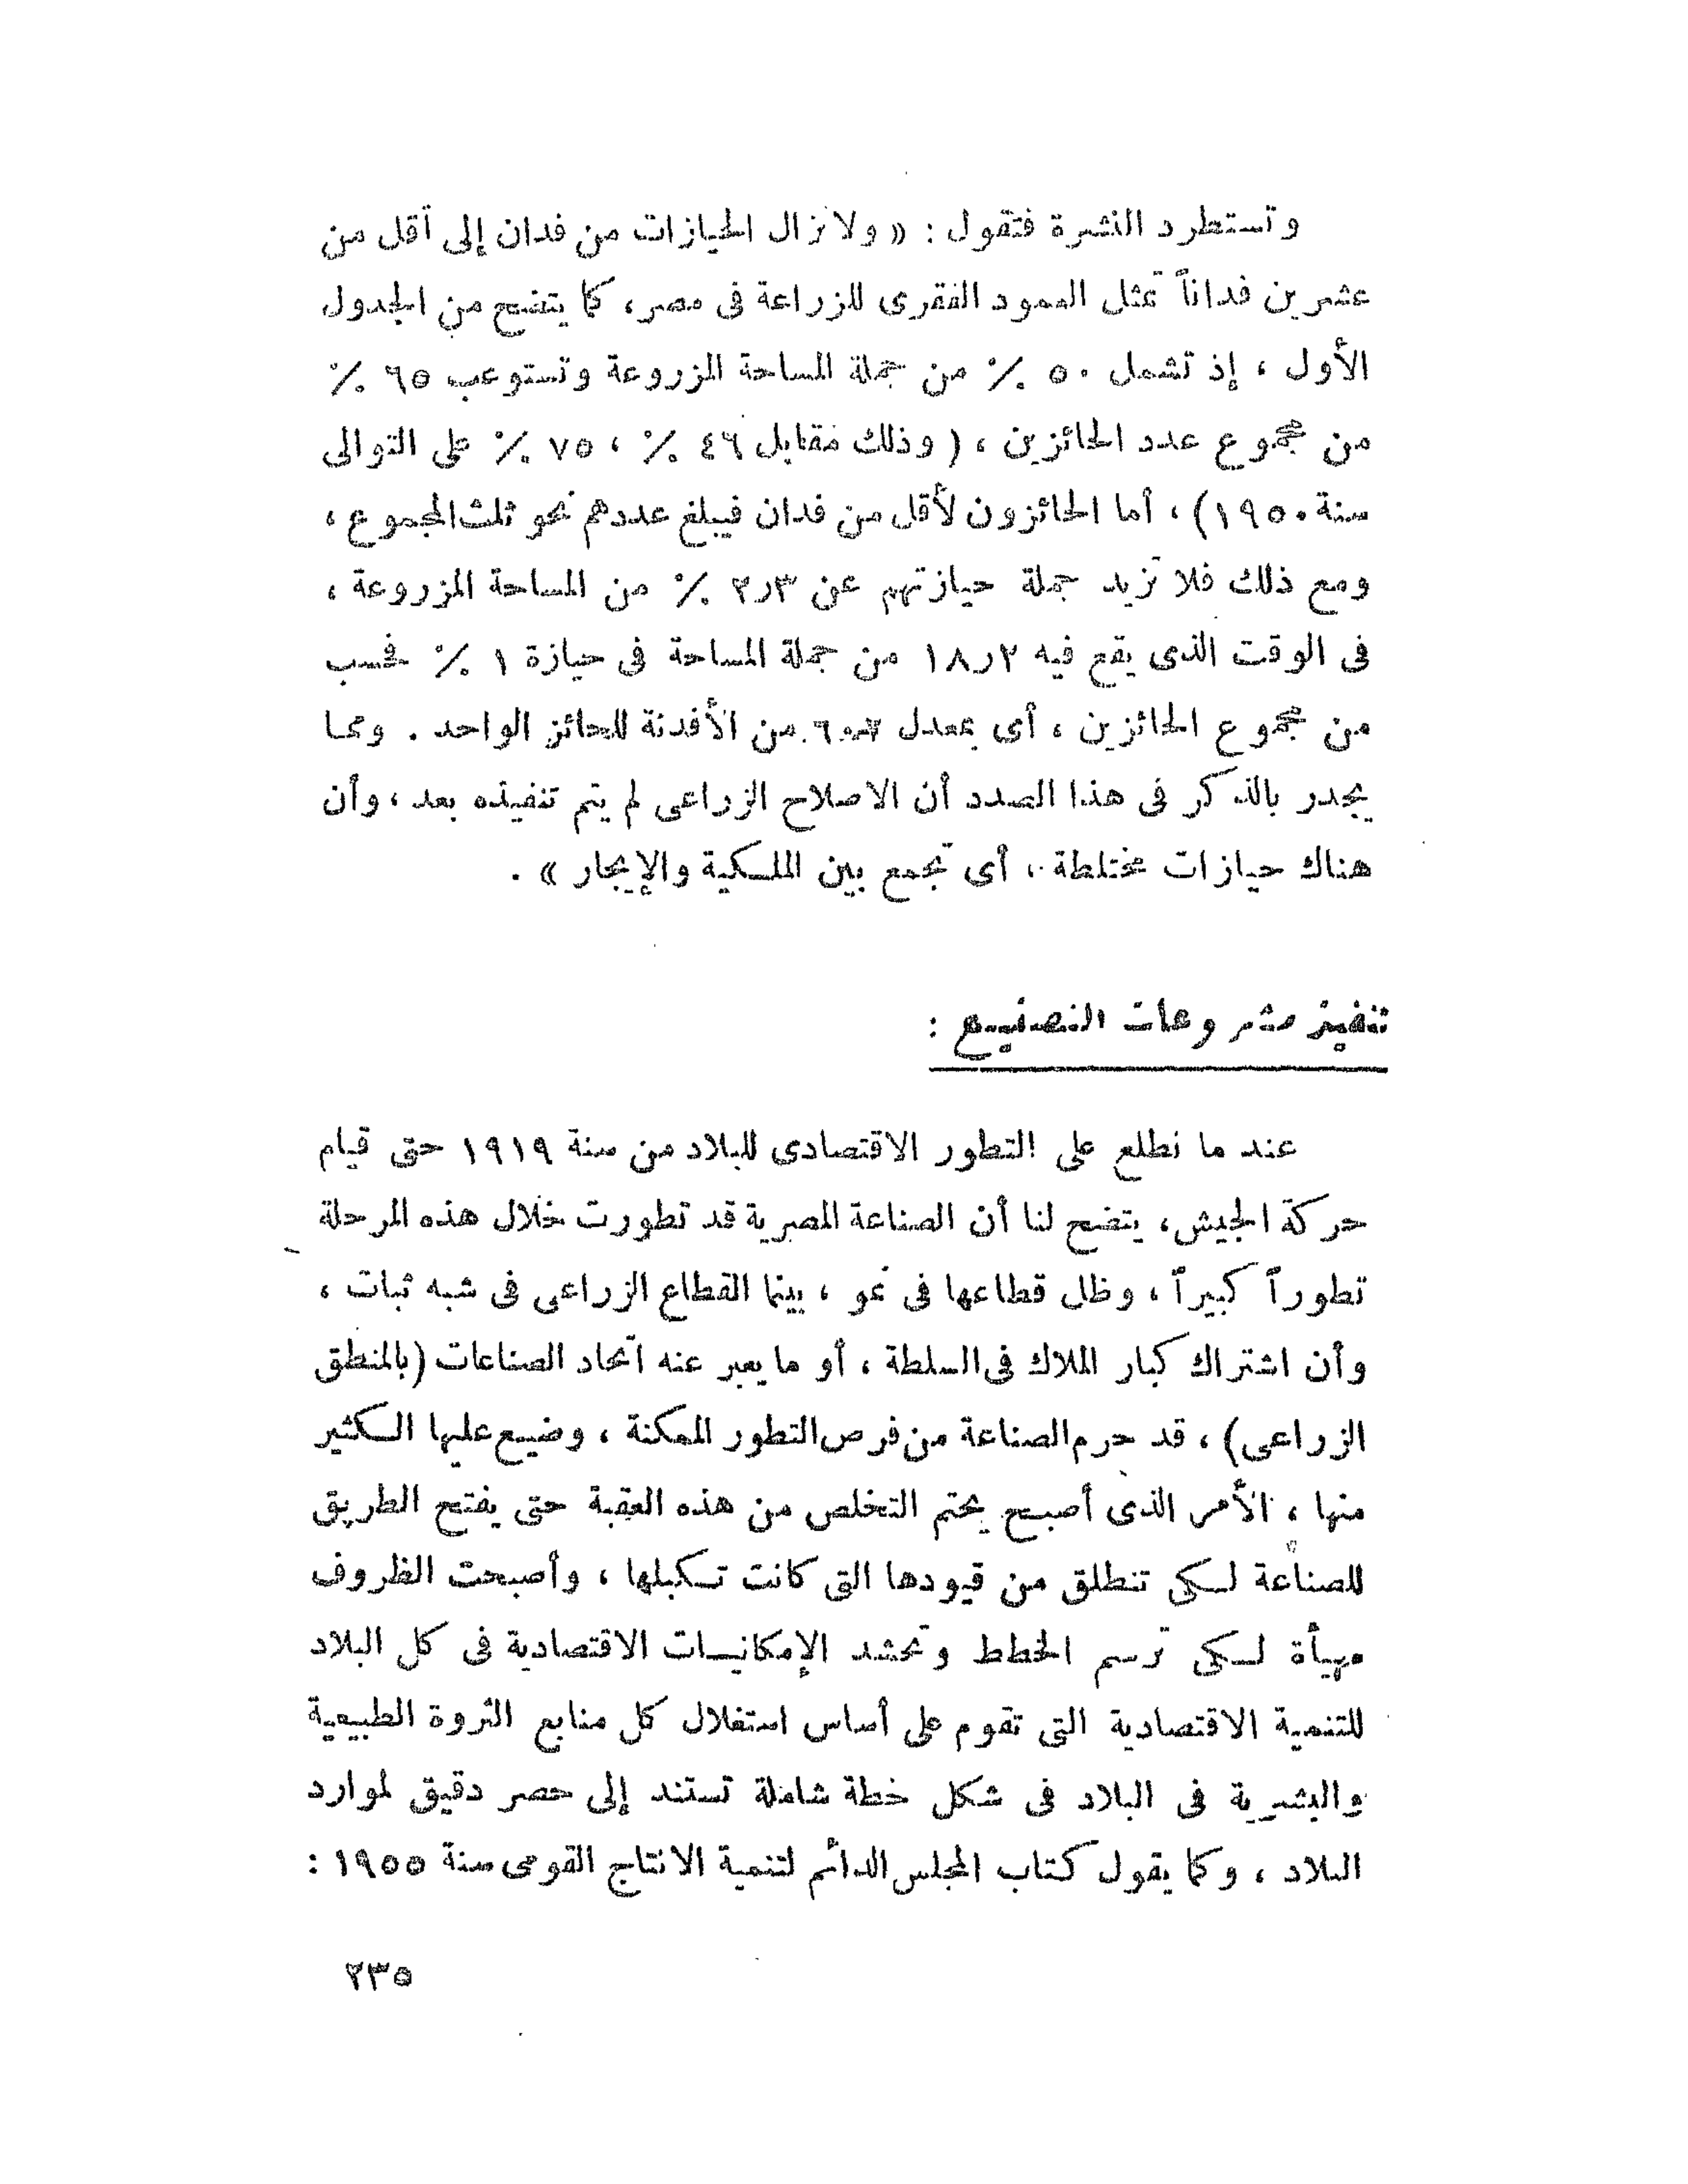 وتستطرد النشرة فتقول : « ولا تزال الحيازات من فدان إلى أقل من
عشرين فداناً تمثل العمود الفقرى للزراعة فى مصر، كما يتضح من الجدول
الأول ، إذ تشمل ٥٠ ٪ من جملة المساحة المزروعة وتستوعب ٦٥ ٪
من مجموع عدد الحائزين ، ( وذلك مقابل ٤٦ ٪ ، ٧٥ ٪ على التوالى
سنة ١٩٥٠) ، أما الحائزون لأقل من فدان فيبلغ عددهم نحو ثلث المجموع ،
ومع ذلك فلا تزيد جملة حيازتهم عن ٢٫٣ ٪ من المساحة المزروعة ،
فى الوقت الذى يقع فيه ١٨٫٢ من جملة المساحة فى حيازة ١ ٪ فحسب
من مجموع الحائزين ، أى بمعدل من الأفدنة للحائز الواحد . ومما
يجدر بالذكر فى هذا الصدد أن الاصلاح الزراعى لم يتم تنفيذه بعد ، وأن
هناك حيازات مختلطة ، أى تجمع بين الملكية والإيجار » .
تنفيذ مشروعات التصنيع :
عند ما نطلع على التطور الاقتصادى للبلاد من سنة ١٩١٩ حتى قيام
حركة الجيش، يتضح لنا أن الصناعة المصرية قد تطورت خلال هذه المرحلة
تطوراً كبيراً ، وظل قطاعها فى نمو ، بينما القطاع الزراعى فى شبه ثبات ،
وأن اشتراك كبار الملاك فى السلطة ، أو ما يعبر عنه اتحاد الصناعات (بالمنطق
الزراعى) ، قد حرم الصناعة من فرص التطور الممكنة ، وضيع عليها الكثير
منها ، الأمر الذى أصبح يحتم التخلص من هذه العقبة حتى يفتح الطريق
للصناعة لكى تنطلق من قيودها التى كانت تكبلها ، وأصبحت الظروف
مهيأة لكى ترسم الخطط وتحشد الإمكانيات الاقتصادية فى كل البلاد
للتنمية الاقتصادية التى تقوم على أساس استغلال كل منابع الثروة الطبيعية
والبشرية فى البلاد فى شكل خطة شاملة تستند إلى حصر دقيق لموارد
البلاد ، وكما يقول كتاب المجلس الدائم لتنمية الانتاج القومى سنة ١٩٥٥ :
٢٣٥